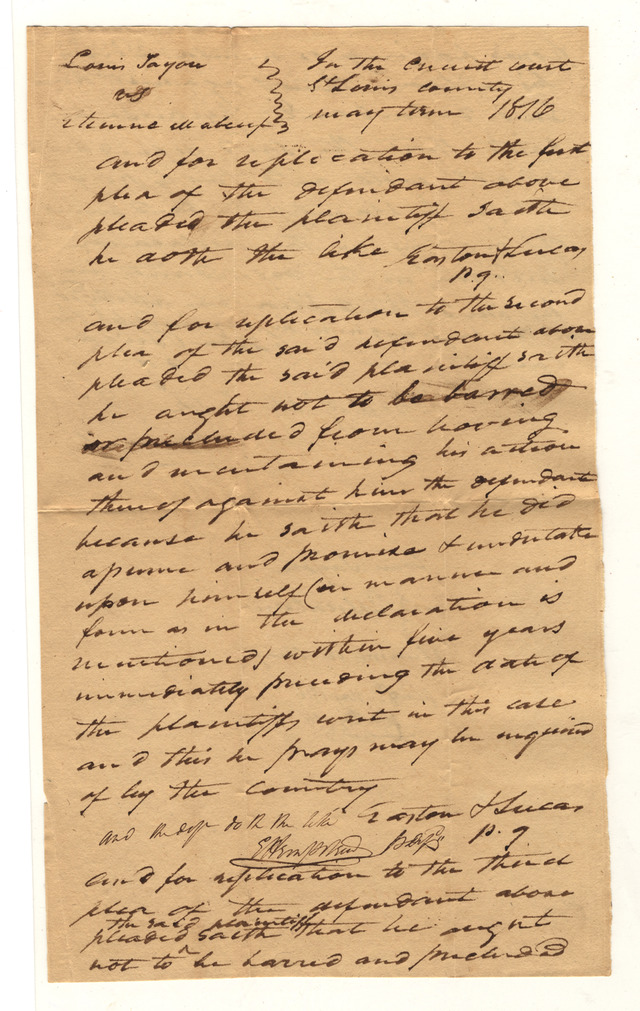 Louis Tayon
vs
Etienne
In the circuit court
St Louis county
may term 1816
and for replication to the first
plea of the defendant above
pleaded the plaintiff saith
he doth the like Easton & Lucas
p. q.
and for replication to the second
plea of the said defendant above
pleaded the said plaintiff saith
he aught not to be barred
or precluded from having
and mentaining his action
thereof against him the defendant
because he saith that he did
asume and promise & undertake
upon himself (in manner and
form as in the declaration is
mentioned) within five years
immediately preceeding the date of
the plaintiffs writ in this case
and this he prays may be inquired
of by the country
Easton & Lucas
p. q
and the deft doth the like
E Hempstead
and for replication to the third
plea of the defendant above
the said plaintiff
pleaded saith that he aught
not to be barred and precluded